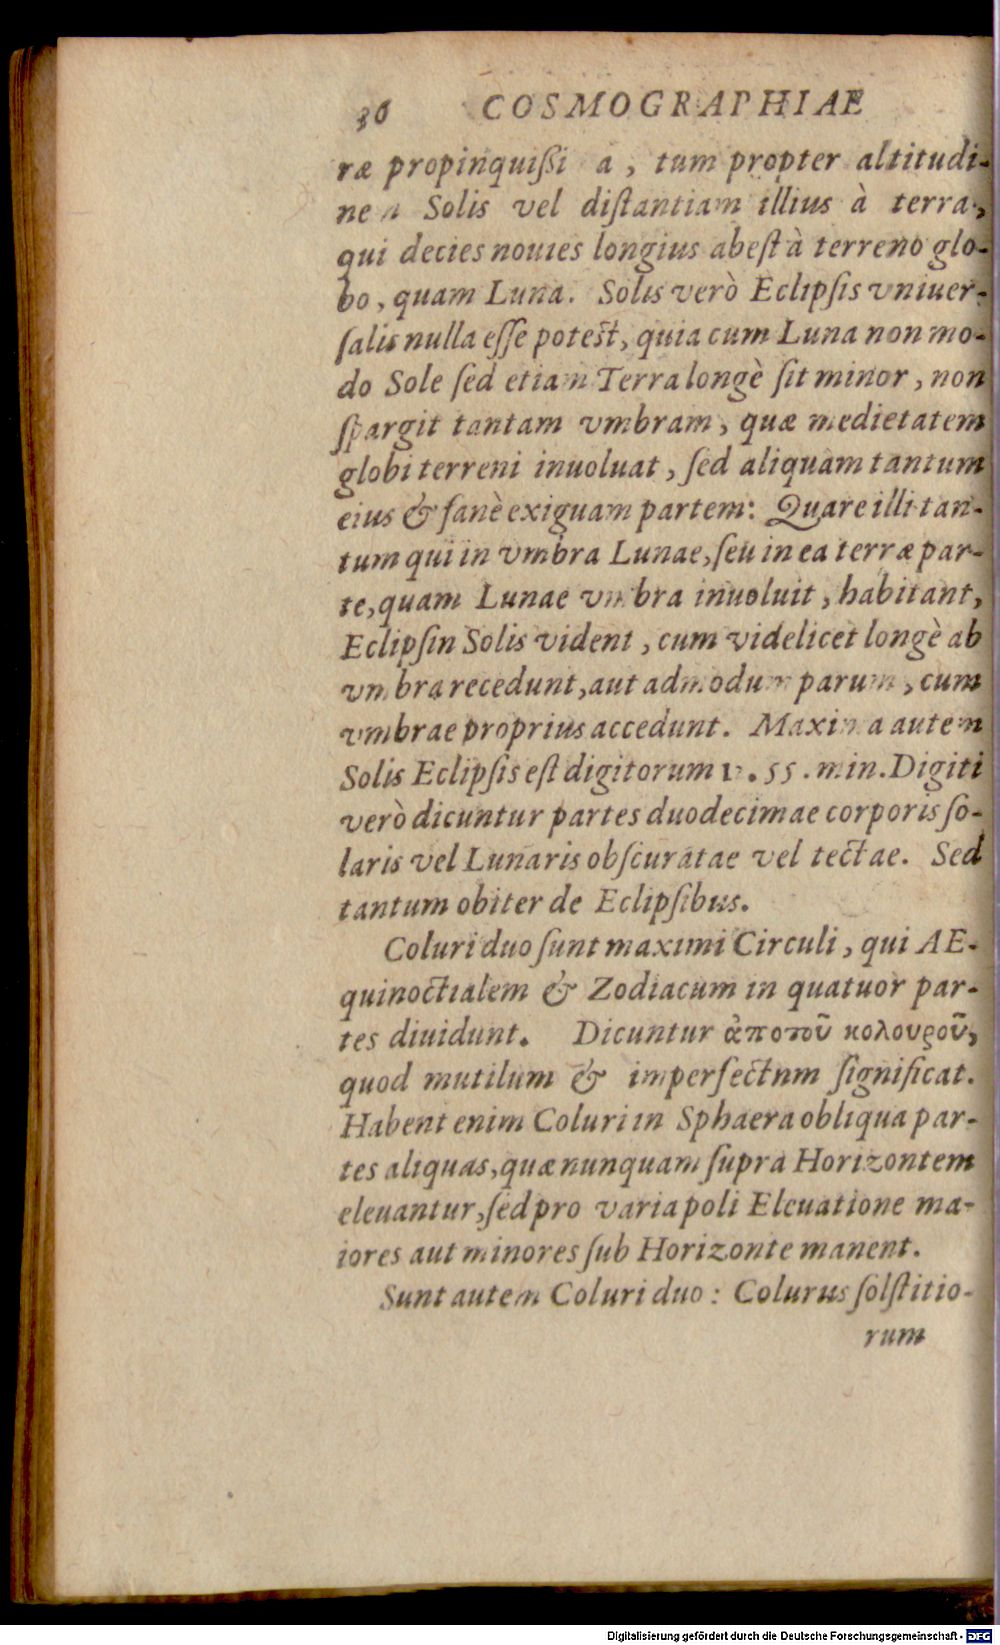 36 COSMOGRAPHIAE
ræ propinquißi a, tum propter altitudi-
nem Solis vel diſtantiam illius à terra,
qui decies nouies longius abeſt à terreno glo-
bo, quam Luna. Solis verò Eclipſis vniuer-
ſalis nulla eſſe poteſt, quia cum Luna non mo-
do Sole ſed etiam Terra longè ſit minor, non
ſpargit tantam vmbram, quæ medietatem
globi terreni inuoluat, ſed aliquam tantum
eius & ſanè exiguam partem: Quare illi tan-
tum qui in vmbra Lunae, ſeu in ea terræ par-
te, quam Lunae vmbra inuoluit, habitant,
Eclipſin Solis vident, cum videlicet longè ab
vmbra recedunt, aut admodum parum, cum
vmbrae proprius accedunt. Maxima autem
Solis Eclipſis eſt digitorum . 55. min. Digiti
verò dicuntur partes duodecimae corporis ſo-
laris vel Lunaris obſcuratae vel tectae. Sed
tantum obiter de Eclipſibus.
Coluri duo ſunt maximi Circuli, qui AE-
quinoctialem & Zodiacum in quatuor par-
tes diuidunt. Dicuntur ἀποτοῦ κολουροῦ,
quod mutilum & imperfectnm ſignificat.
Habent enim Coluri in Sphaera obliqua par-
tes aliquas, quæ nunquam ſupra Horizontem
eleuantur, ſed pro varia poli Eleuatione ma-
iores aut minores ſub Horizonte manent.
Sunt autem Coluri duo: Colurus ſolſtitio-
rum
Digitalisierung gefördert durch die Deutsche Forschungsgemeinschaft - DFG